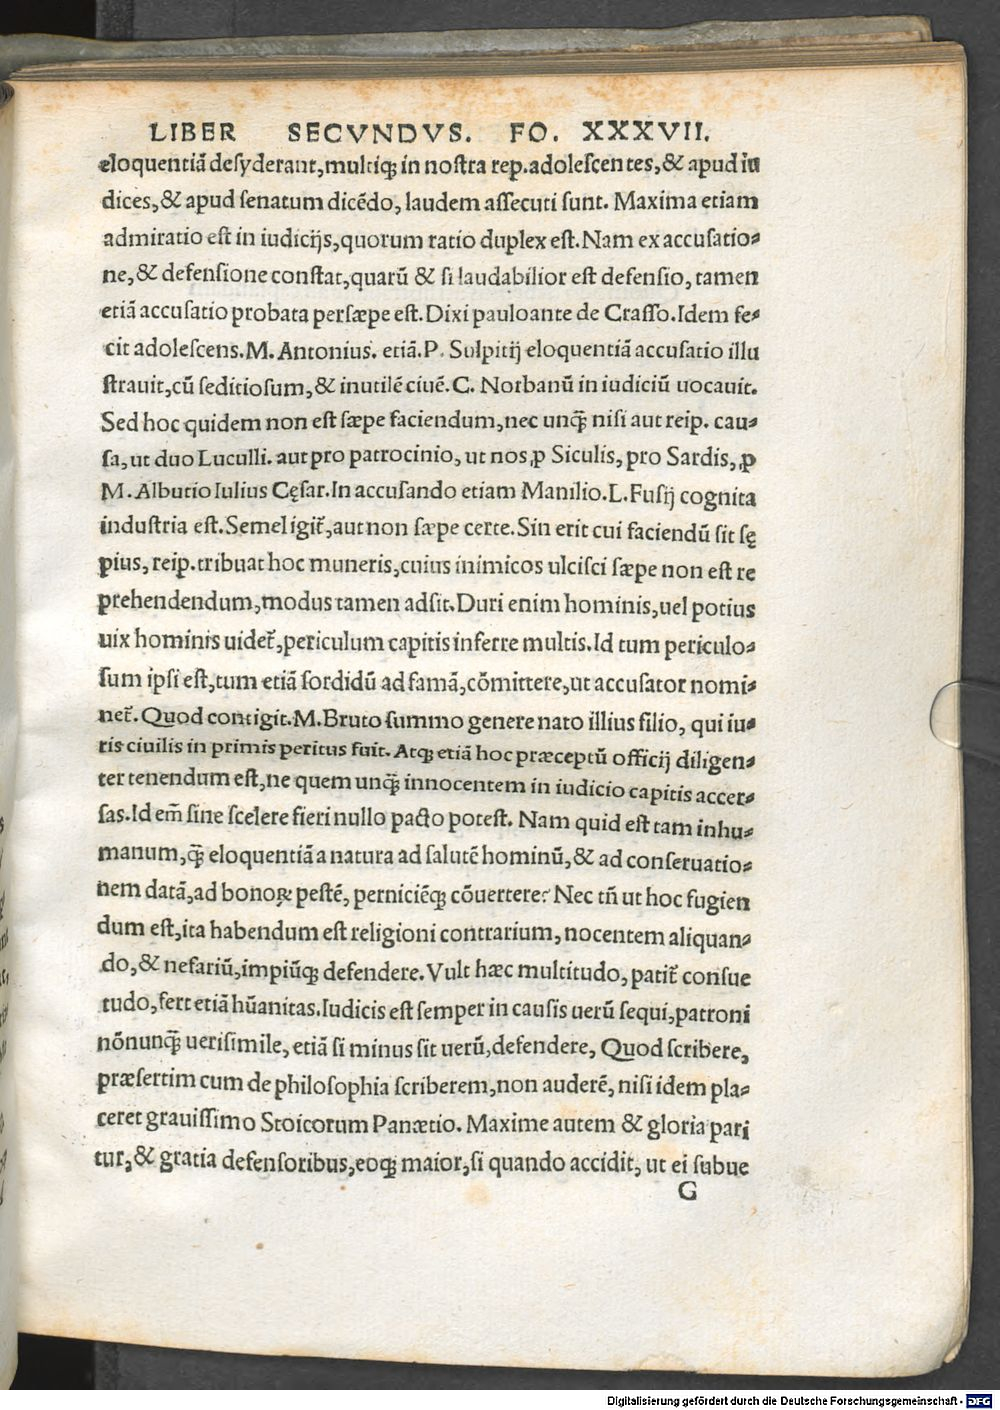 LIBER SECVNDVS. FO. XXXVII.
eloquentiā desyderant,multiqꝫ in nostra rep.adolescentes,& apud iu
dices,& apud senatum dicēdo, laudem assecuti sunt. Maxima etiam
admiratio est in iudicijs,quorum ratio duplex est.Nam ex accusatio⸗
ne,& defensione constat,quarū & si laudabilior est defensio, tamen
etiā accusatio probata persæpe est.Dixi pauloante de Crasso.Idem fe⸗
cit adolescens.M. Antonius. etiā.P. Sulpitij eloquentiā accusatio illu
strauit,cū seditiosum,& inutilē ciuē.C. Norbanū in iudiciū uocauit.
Sed hoc quidem non est sæpe faciendum,nec unq̄ nisi aut reip. cau⸗
sa,ut duo Luculli. aut pro patrocinio, ut nos ꝓ Siculis, pro Sardis, ꝓ
M. Albutio Iulius Cęsar.In accusando etiam Manilio.L.Fusij cognita
industria est.Semel igit̄,aut non sæpe certe.Sin erit cui faciendū sit sę
pius, reip.tribuat hoc muneris,cuius inimicos ulcisci sæpe non est re
prehendendum,modus tamen adsit.Duri enim hominis,uel potius
uix hominis uidet̄,periculum capitis inferre multis.Id tum periculo⸗
sum ipsi est,tum etiā sordidū ad famā,cōmittere,ut accusator nomi⸗
net̄. Quod contigit.M.Bruto summo genere nato illius filio, qui iu⸗
ris ciuilis in primis peritus fuit. Atqꝫ etiā hoc præceptū officij diligen⸗
ter tenendum est,ne quem unq̄ innocentem in iudicio capitis accer⸗
sas.Id em̄ sine scelere fieri nullo pacto potest. Nam quid est tam inhu⸗
manum,q̄ eloquentiā a natura ad salutē hominū,& ad conseruatio⸗
nem datā,ad bonoꝝ pestē, perniciēqꝫ cōuertere? Nec tn̄ ut hoc fugien
dum est,ita habendum est religioni contrarium, nocentem aliquan⸗
do,& nefariū,impiūqꝫ defendere. Vult hæc multitudo, patit̄ consue
tudo,fert etiā hūanitas.Iudicis est semper in causis uerū sequi,patroni
nōnunq̄ uerisimile, etiā si minus sit uerū,defendere, Quod scribere,
præsertim cum de philosophia scriberem,non auderē, nisi idem pla⸗
ceret grauissimo Stoicorum Panætio. Maxime autem & gloria pari
tur,& gratia defensoribus,eoqꝫ maior,si quando accidit, ut ei subue
G
Digitalisierung gefördert durch die Deutsche Forschungsgemeinschaft - DFG